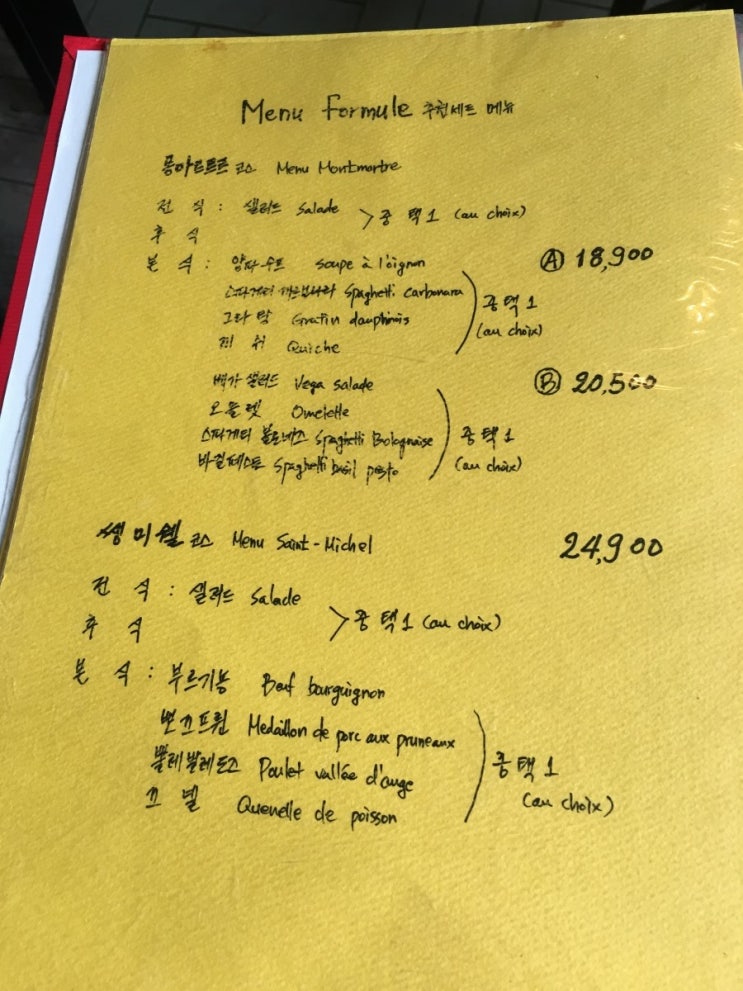 Menu Formule 추천세트 메뉴
몽마르트르 코스 Menu Montmartre
전 식 : 샐러드 Salade > 중 택 1 (au choix)
후 식
본 식 : 양파수프 soupe à l'oignon Ⓐ 18,900
스파게티 까르보나라 Spaghetti Carbonara 중 택 1
그라탕 Gratin dauphinois (au choix)
끼 쉬 Quiche
베가 샐러드 Vega salade Ⓑ 20,500
오믈렛 Omelette
스파게티 볼로네즈 Spaghetti Bolognaise 중 택 1
바질페스토 Spaghetti basil pesto (au choix)
쌩 미쉘 코스 Menu Saint-Michel 24,900
전 식 : 샐러드 Salade
후 식 > 중 택 1 (au choix)
본 식 : 부르기뇽 Bœuf bourguignon
뽀끄프륀 Medaillon de porc aux pruneaux
뿔레발레도즈 Poulet vallée d'auge 중 택 1
끄 넬 Quenelle de poisson (au choix)